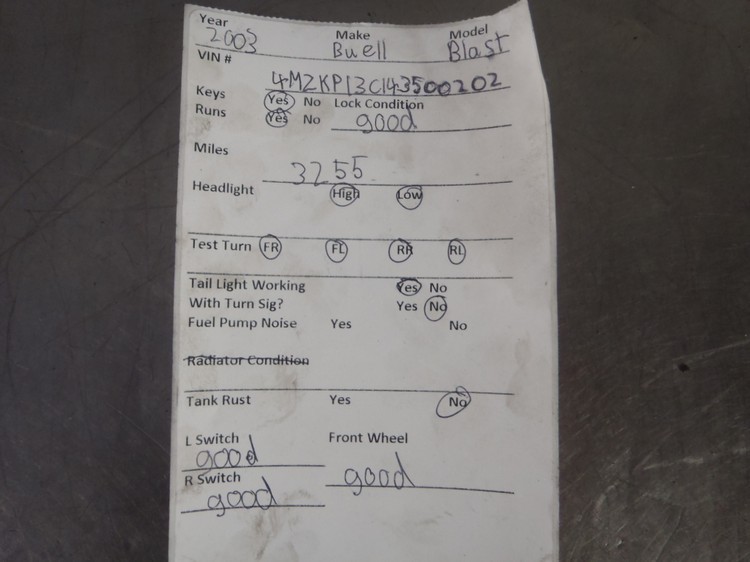 Year Make Model
2003 Buell Blast
VIN #
4MZKP13C143500202
Keys Yes No Lock Condition
Runs Yes No good
Miles
3255
Headlight High Low
Test Turn FR FL RR RL
Tail Light Working Yes No
With Turn Sig? Yes No
Fuel Pump Noise Yes No
Radiator Condition
Tank Rust Yes No
L Switch Front Wheel
good
R Switch good
good